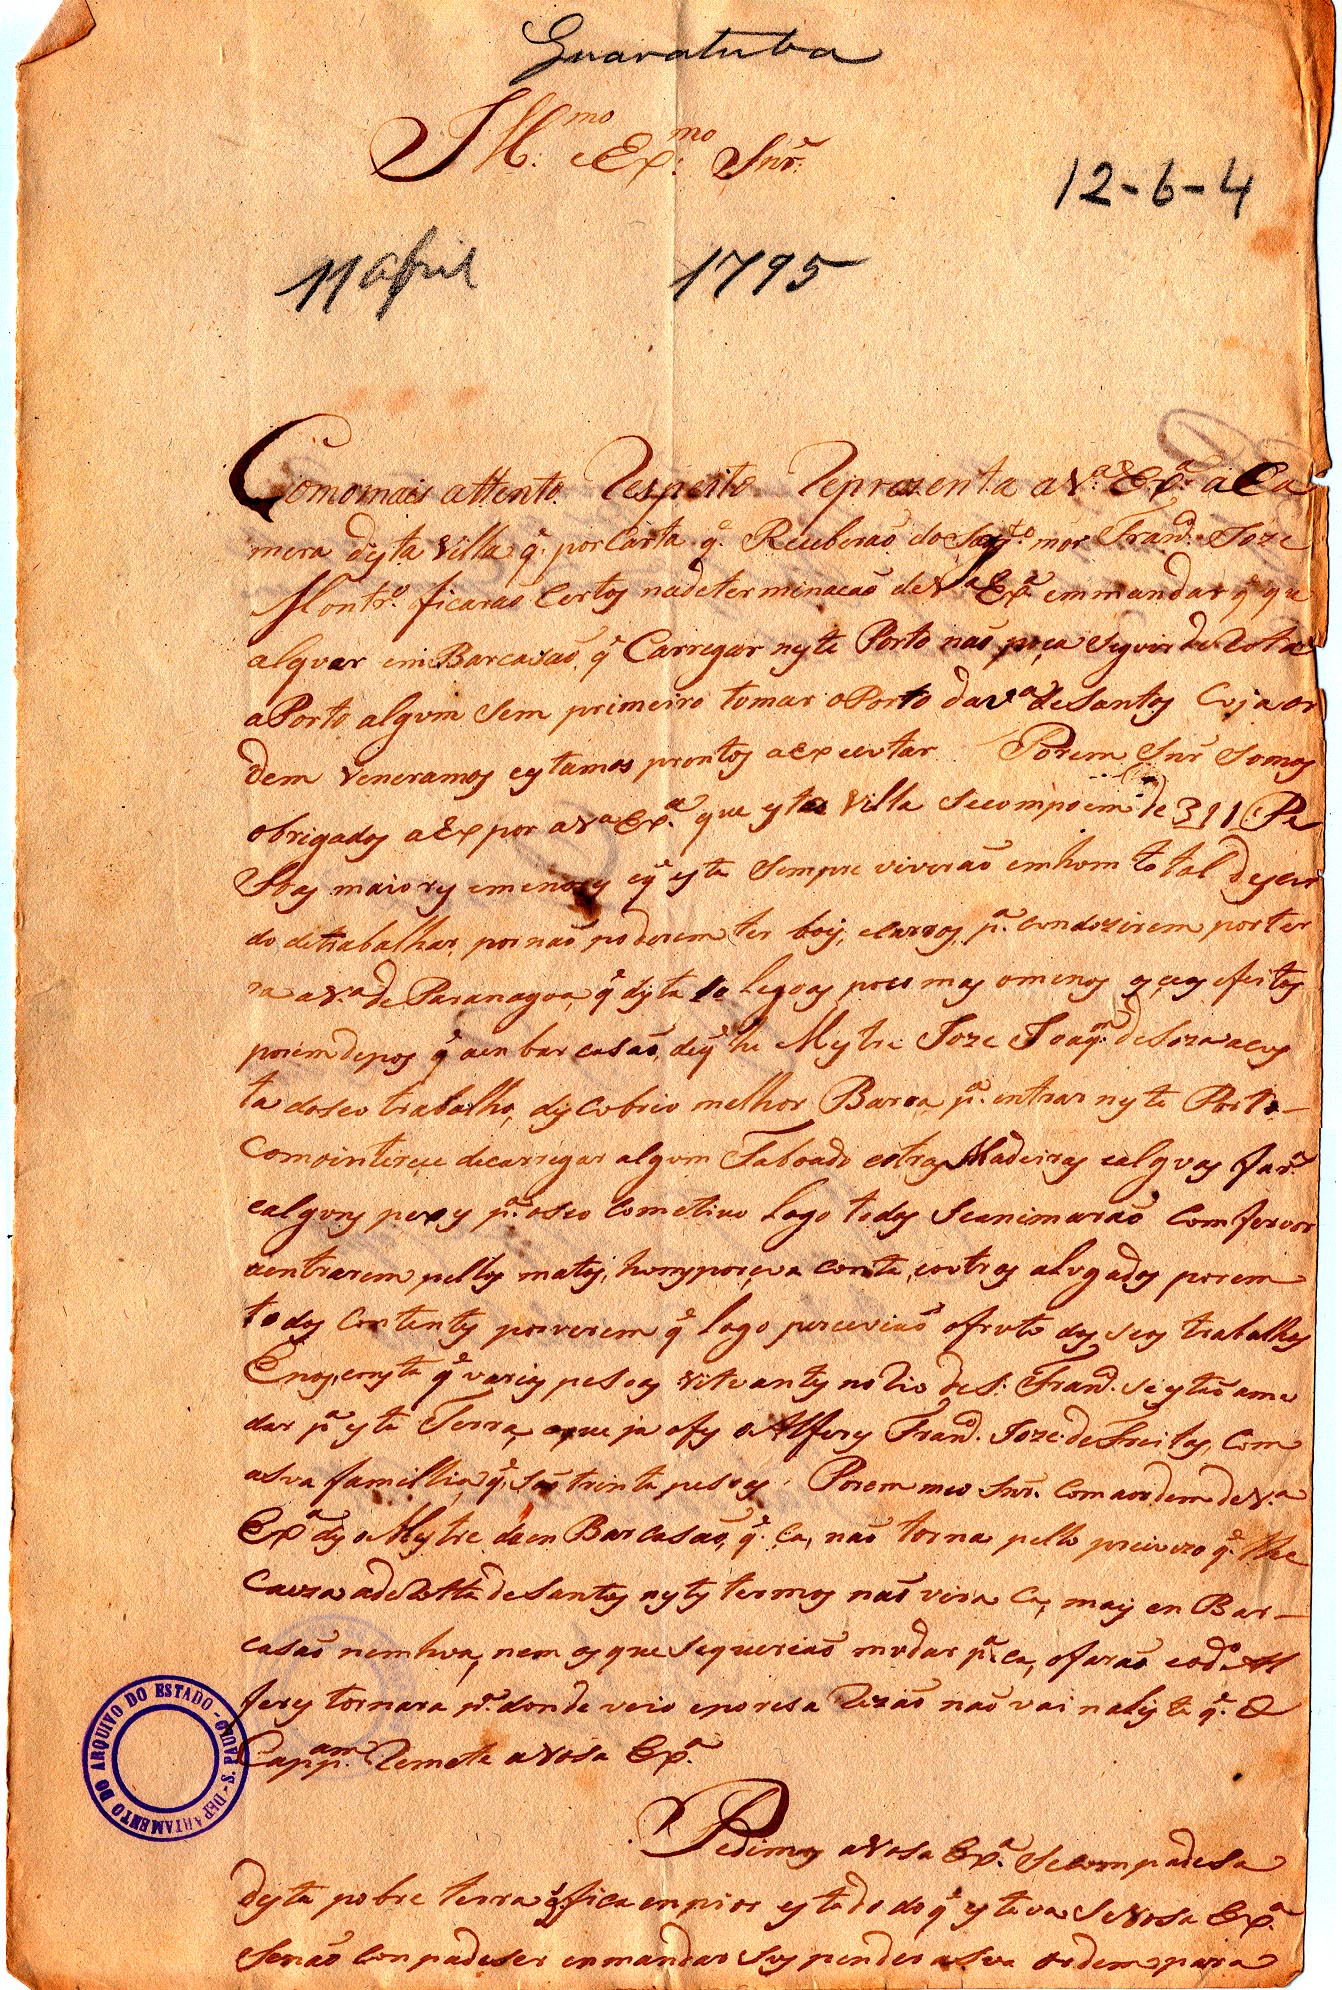 Guaratuba
Ill.mo e Ex.mo Snr.
12-6-4
11 abril 1795
Comomais attento Respeito Reprezenta a V.a Ex.a a Ca
mera desta Villa q̃. por Carta q̃. Receberaõ do Sarg.to mor Fran.co Joze
Montr.o ficaraõ Certos nadeterminacaõ de V.a Ex.a emmandar q̃ que
alquer em Barcasaõ, q̃ Carregar neste Porto naõ poça seguir de Rota
a Porto algum sem primeiro tomar o Porto da V.a de Santos Cuja or
dem Veneramos eestamos prontos aexecutar Porem Snr somos
obrigados a Expor a V.a Ex.a que esta Villa secompoem de 311 Pe
soas maiores emenores eq̃ esta sempre viveraõ emhum total descui
do detrabalhar, por naõ poderem ter bois, ecarros, p.a condozirem por ter
ra a V.a de Paranagoa, q̃ dista 10 legoas pocu mas omenos os ceos efeitos
porem depos q̃ aen barcasaõ, deq̃ he Mestre Joze Joaq.m deSoza acus
ta doseo trabalho, descubrio melhor Barra p.a entrar neste Porto
comointerece decarregar algum Taboado eotras Madeiras ealguas far.a
ealguns pexes p.a oseo cometivo logo todos seanimaraõ com fervor
aentrarem pellos matos, huns porçua conta, eoutros alugados porem
todos contentes porverem q̃ logo perceviaõ ofruto dos seos trabalhos
Enos consta q̃ varias pesoas situantes no Rio de S. Fran.co seestaõ amu
dar p.a esta Terra, oque ja ofes o Alferes Fran.co Joze de Freitas, com
asua familhia q̃. saõ trinta pesoas. Porem meo Snr. com aordem de V.a
Ex.a dis o Mestre da en Barcasaõ, q̃. ca, naõ torna pello preivizo q̃. lhe
Cauza a deRotta de Santos nestes termos naõ vira ca, mais en Bar-
casaõ nemhua, nem os que sequeriaõ mudar p.a ca, ofaraõ eod.o Al
feres tornara p.a donde veio eporesa Rezaõ naõ vai nalista q̃. O
Capp.am Remete a Vosa Ex.a
Pedimos a Vosa Ex.a secompadesa
desta pobre terra q̃ fica enpior estado doq̃ estava se Vosa Ex.a
senaõ conpadeser enmandar suspender asua ordem para
DEPARTAMENTO DO ARQUIVO DO ESTADO - S. PAULO -